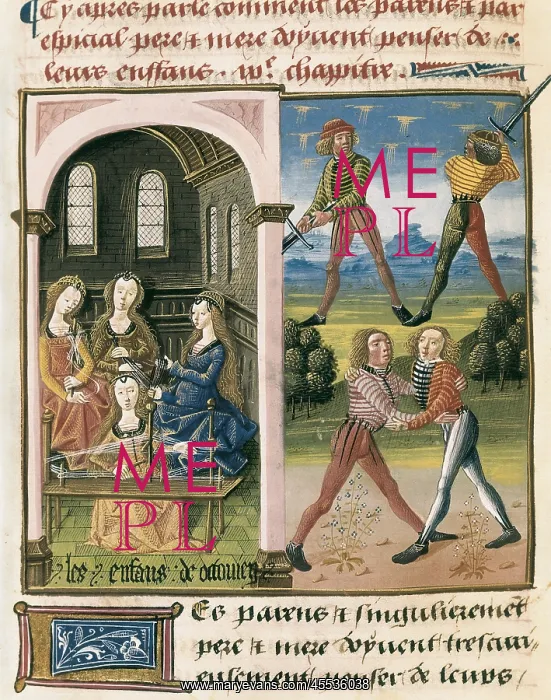 Cy apres parle comment les parens & par
especial pere & mere doyuent penser de
leurs enffans . chapitre .
ME
PL
ME
PL
les enfans de octouien
Es parens & singulieremēt
pere & mere doyuent
ser de leurs
www.maryevans.com/45536038